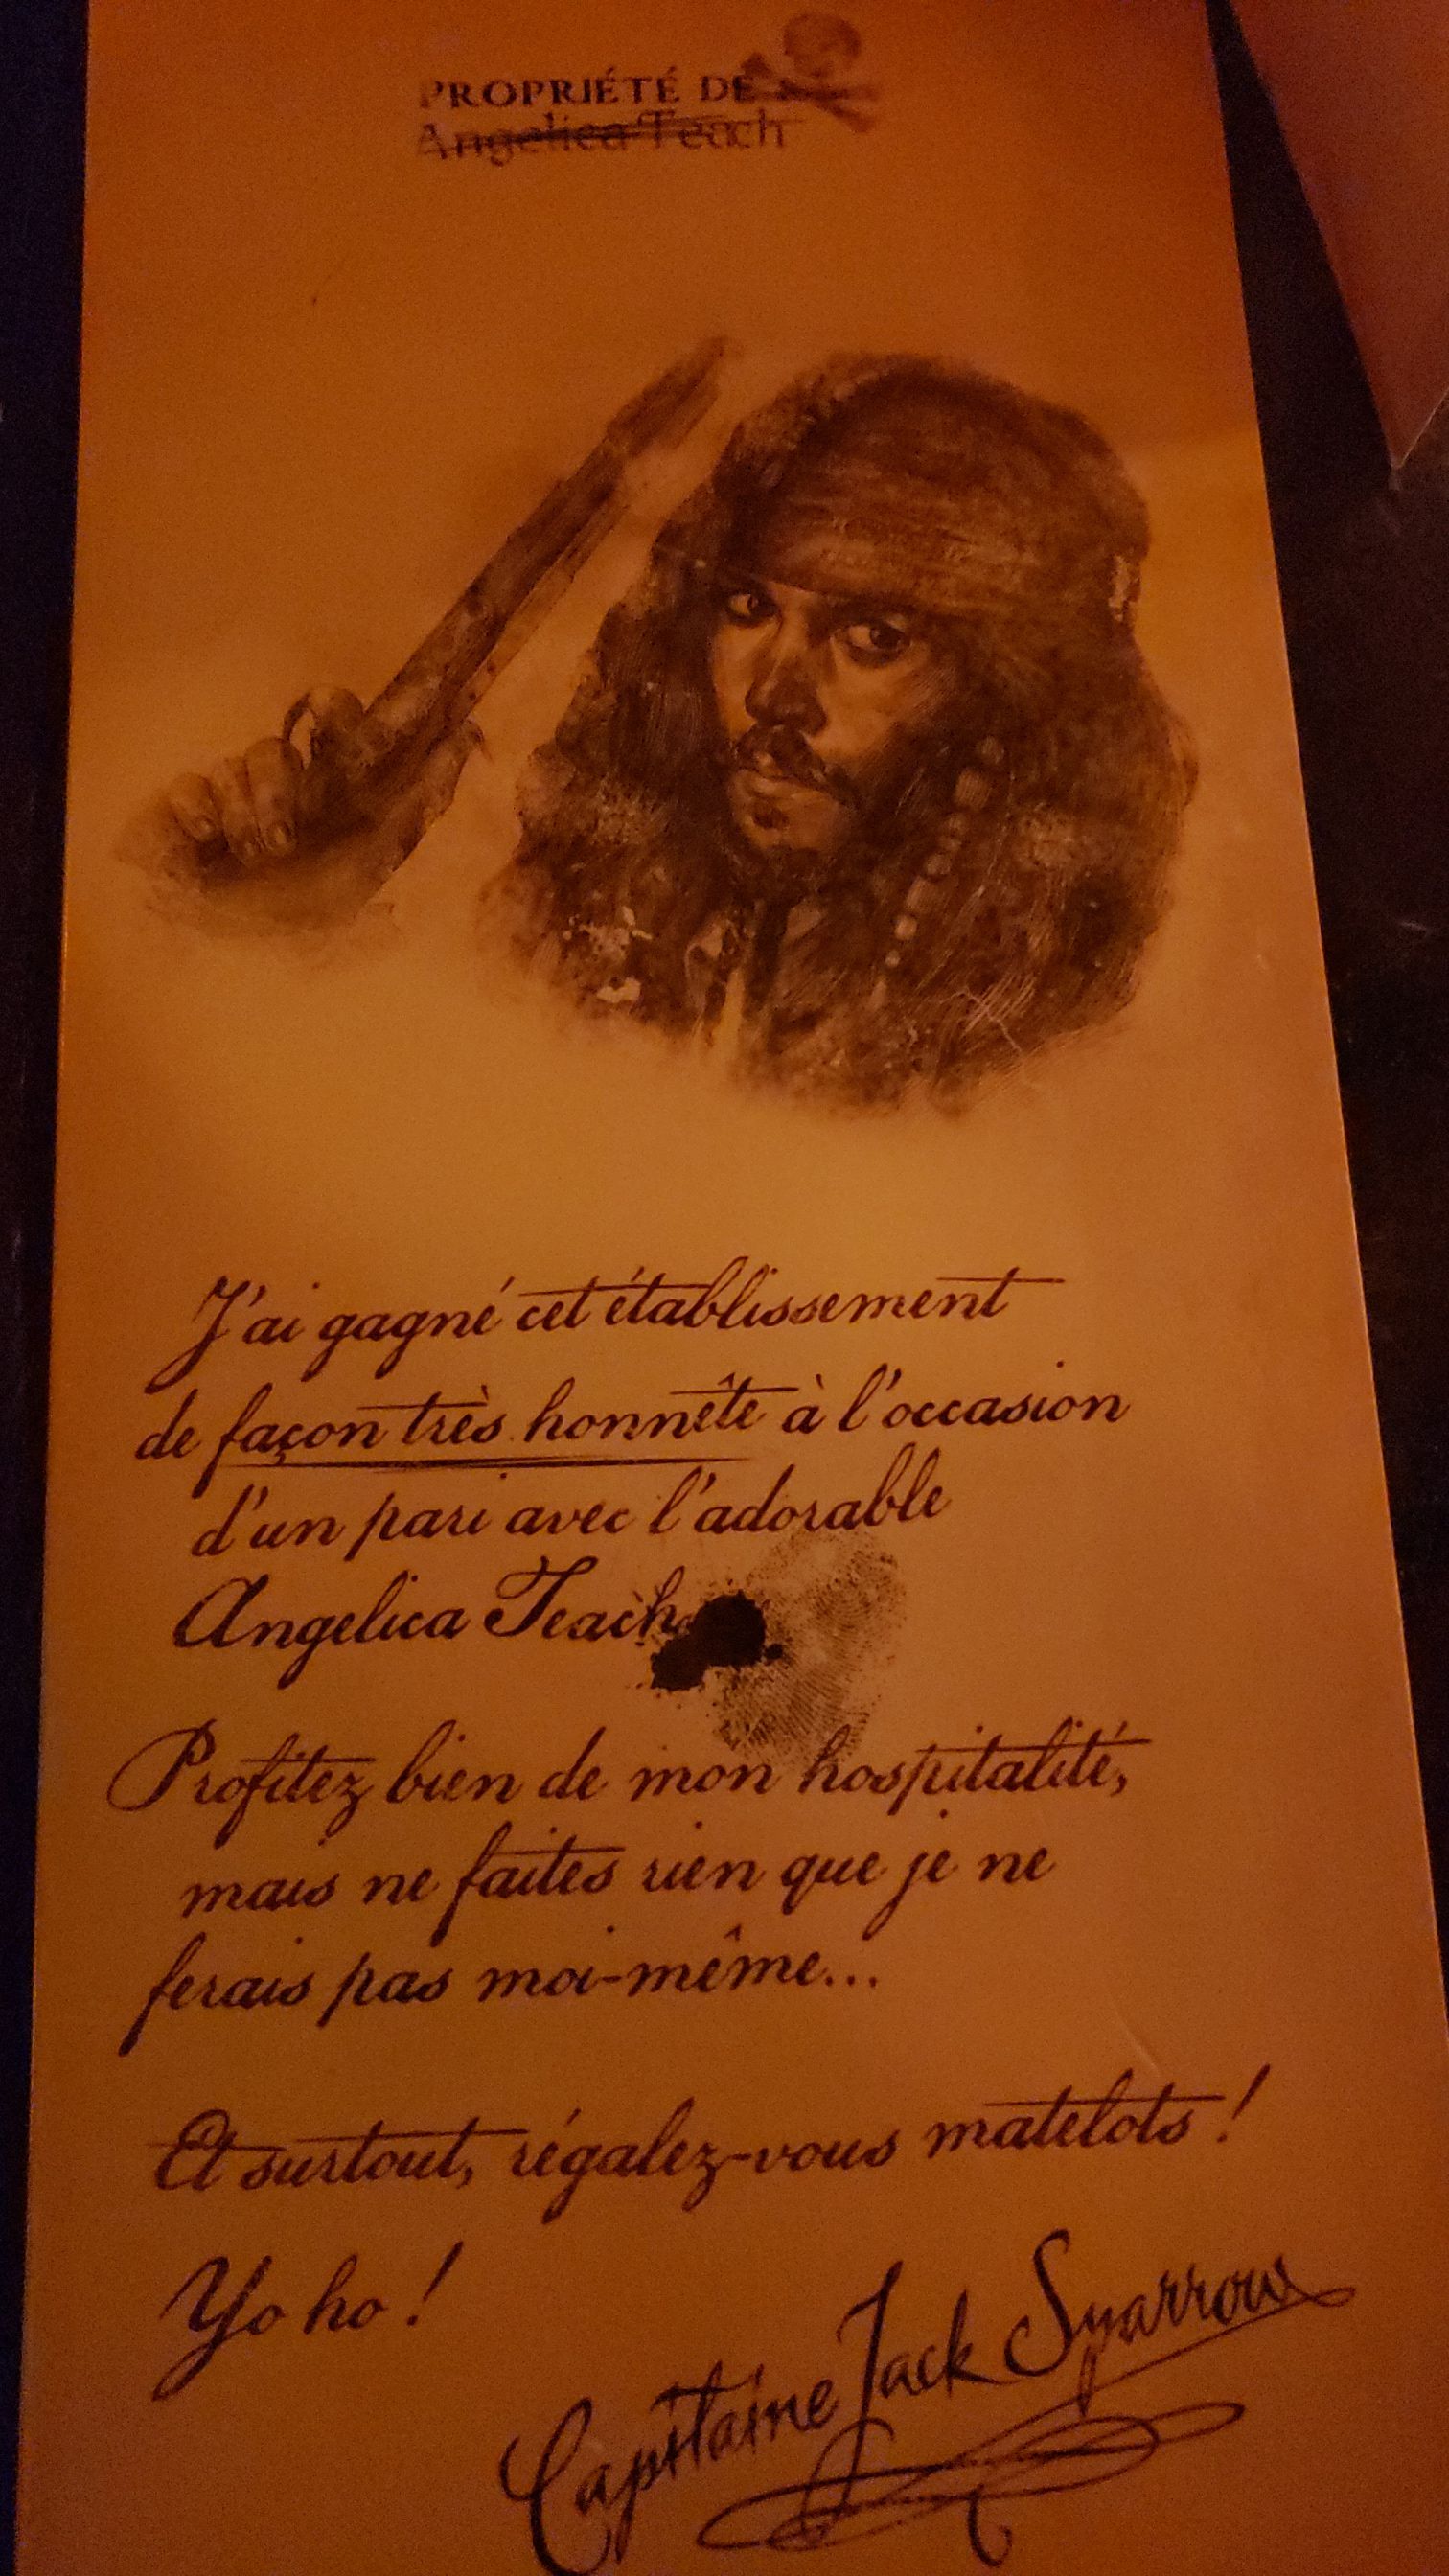 PROPRIÉTÉ DE
Angelica Teach
J'ai gagné cet établissement
de façon très honnête à l'occasion
d'un pari avec l'adorable
Angelica Teach
Profitez bien de mon hospitalité,
mais ne faites rien que je ne
ferais pas moi-même...
Et surtout, régalez-vous matelots !
Yo ho !
Capitaine Jack Sparrow